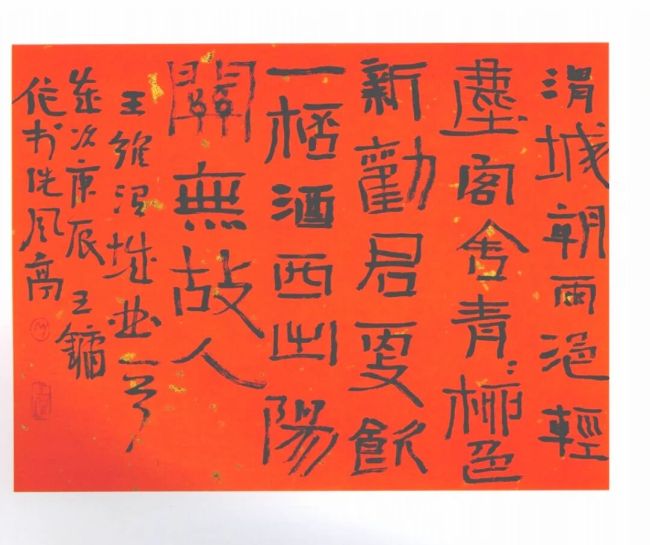 渭城朝雨浥輕
塵客舍青〻柳色
新勸君更飲
一桮酒西出陽
關無故人
王維渭城曲一首
歲次庚辰王鏞
作風